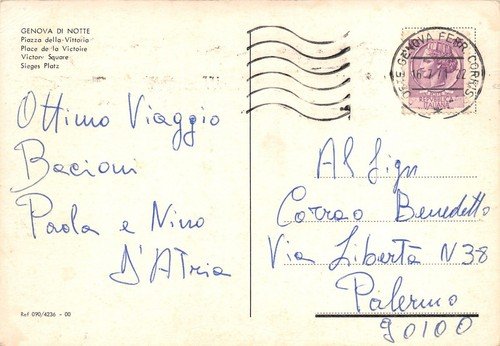 GENOVA DI NOTTE
Piazza della Vittoria
Place de la Victoire
Victory Square
Sieges Platz
Ottimo Viaggio
Bacioni
Paola e Nino
D'Atria
Ref 090/4236 - 00
GENOVA FERR. CORRISP
Al Sign
Corrao Benedetto
Via Libertà N38
Palermo
90100